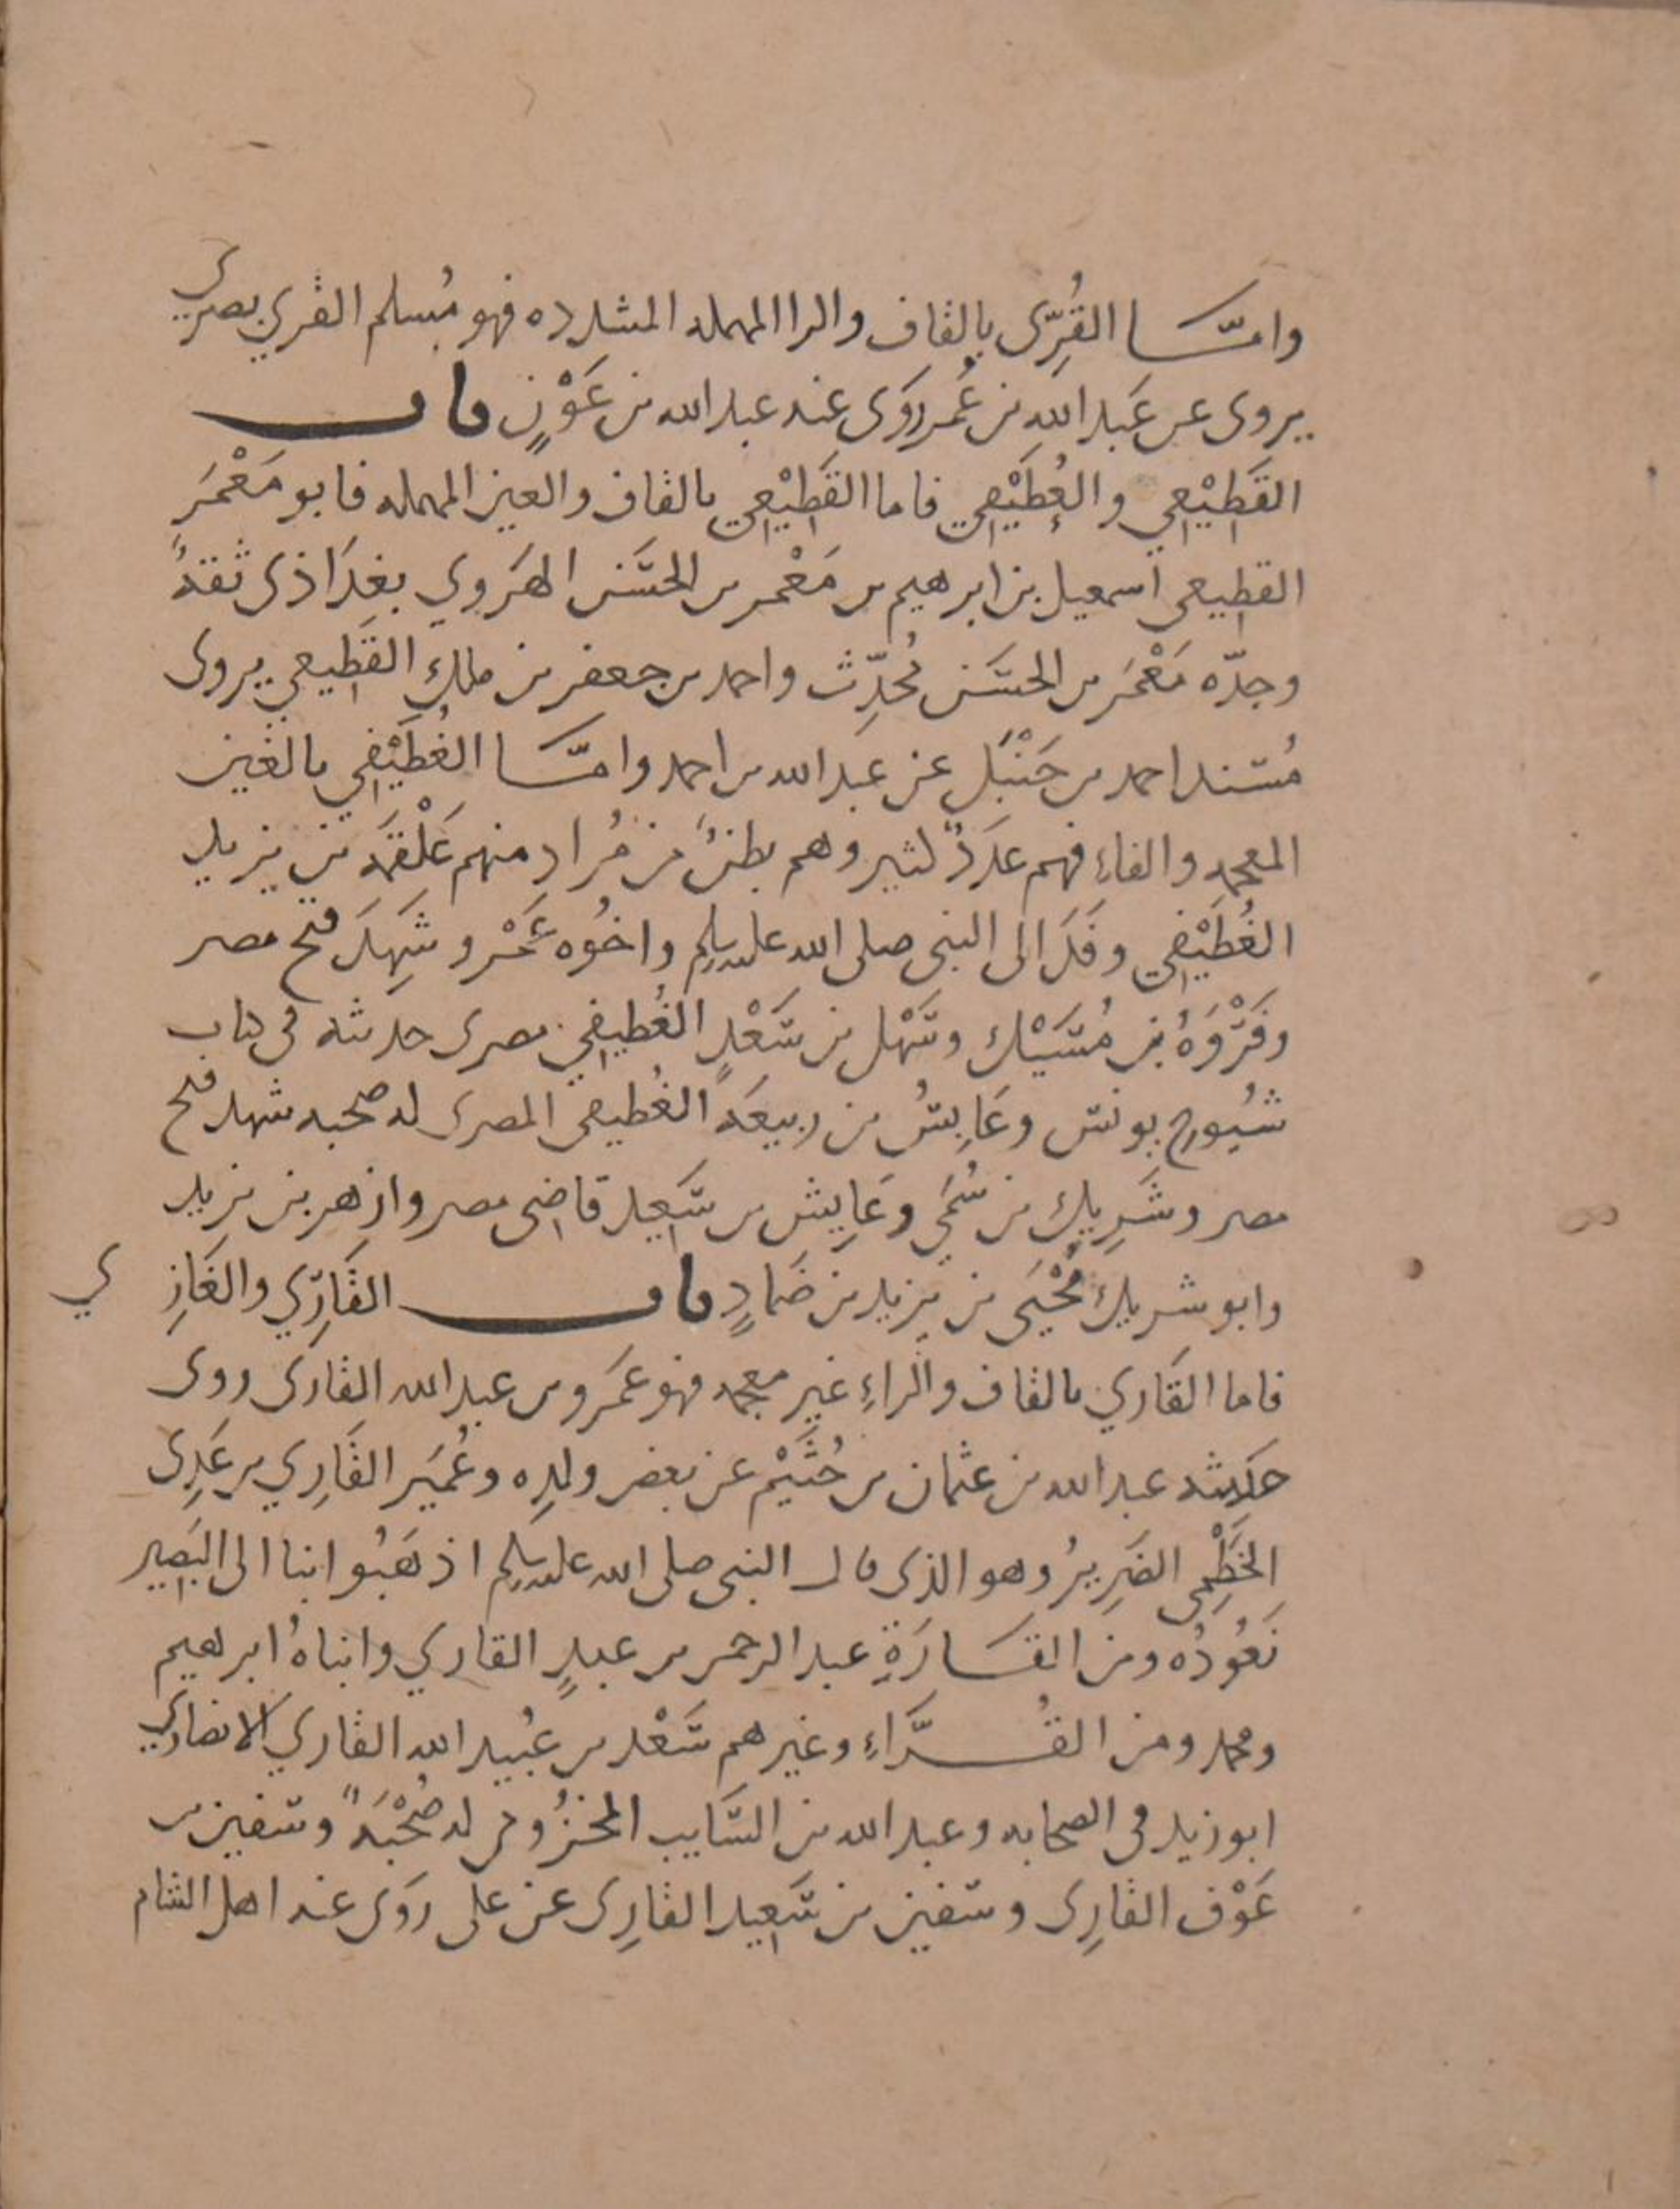 وامّا القُرِّى بالقاف والرا المهمله المشدده فهو مُسلم القري بصري
يروى عن عَبد اللهِ بن عُمر رَوَى عنه عبد الله بن عَوْنٍ باب
القَطِيْعِي والغُطَيْفي فاما القَطِيْعِي بالقاف والعين المهمله فابو مَعْمَرٍ
القطِيعى اسمعيل بن ابرهيم بن مَعْمر بن الحسَن الهَروي بغدَاذى ثقةُ
وجدّه مَعْمَر بن الحسَن مُحدِّث واحمد بن جعفر بن ملكٍ القَطِيعي يروى
مُسند احمد بن حَنْبَل عن عبد الله بن احمد وامّا الغُطَيْفي بالغين
المعجمه والفاءِ فهم عدَدٌ كثير وهم بطنٌ من مُرادٍ منهم عَلْقَمَه بن يزيد
الغُطَيْفي وفَدَ الى النبى صلى الله عليه وسلم واخُوه عَمْرو شَهِدَ فتح مصر
وفَرْوَةُ بن مُسَيْك وسَهْل بن سَعْدٍ الغُطيفي مصرى حديثه فى كتاب
شيُوخ يونس وعَابِسُ بن ربيعَة الغُطيفى المصرى له صحبه شهد فتح
مصر وشَرِيك بن سُمَيّ وعَابِس بن سَعِيد قاضى مصر وازهر بن يزيد
وابو شريك يُحْيَى بن يزيد بن ضَمادٍ باب القَارِّي والغَازِي
فاما القَاري بالقاف والراءِ غير معجمه فهو عَمَرو بن عبد الله القارى روى
حَديثه عبد الله بن عثمان بن خُثَيْم عن بعض ولدِه وعُمَير القَارِي بن عَدِى
الخَطْمِى الضَرِيرُ وهو الذى قال النبى صلى الله عليه وسلم اذهَبُوا بنا الى البَصِير
نَعُودُه ومن القَارَةِ عبد الرحمن بن عبدٍ القاري وابناهُ ابرهيم
ومحمد ومن القُرَّاءِ وغيرهم سَعْد بن عُبيد الله القاري الانصارى
ابو زيد فى الصحابه وعبد الله بن السَّايب المخزُومى له صُحْبَةً وسفين بن
عَوْف القارِى وسفين بن سَعِيد القارِى عن على رَوَى عنه اهل الشام